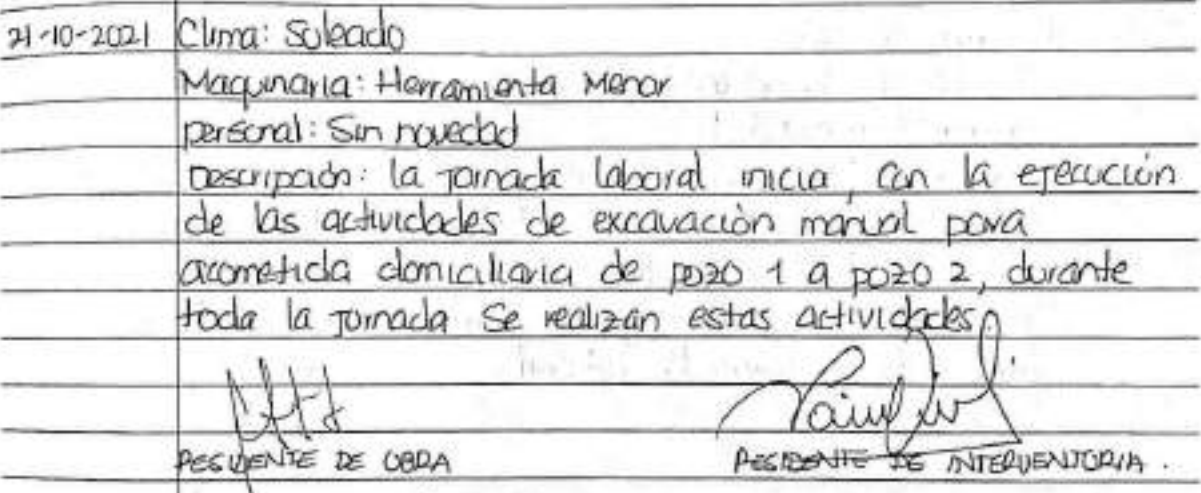 21-10-2021 Clima: Soleado
Maquinaria: Herramienta Menor
personal: Sin novedad
Descripción: la Jornada laboral inicia, con la ejecución
de las actividades de excavación manual para
acometida domiciliaria de pozo 1 a pozo 2, durante
toda la Jornada Se realizan estas actividades.
RESIDENTE DE OBRA RESIDENTE DE INTERVENTORIA.